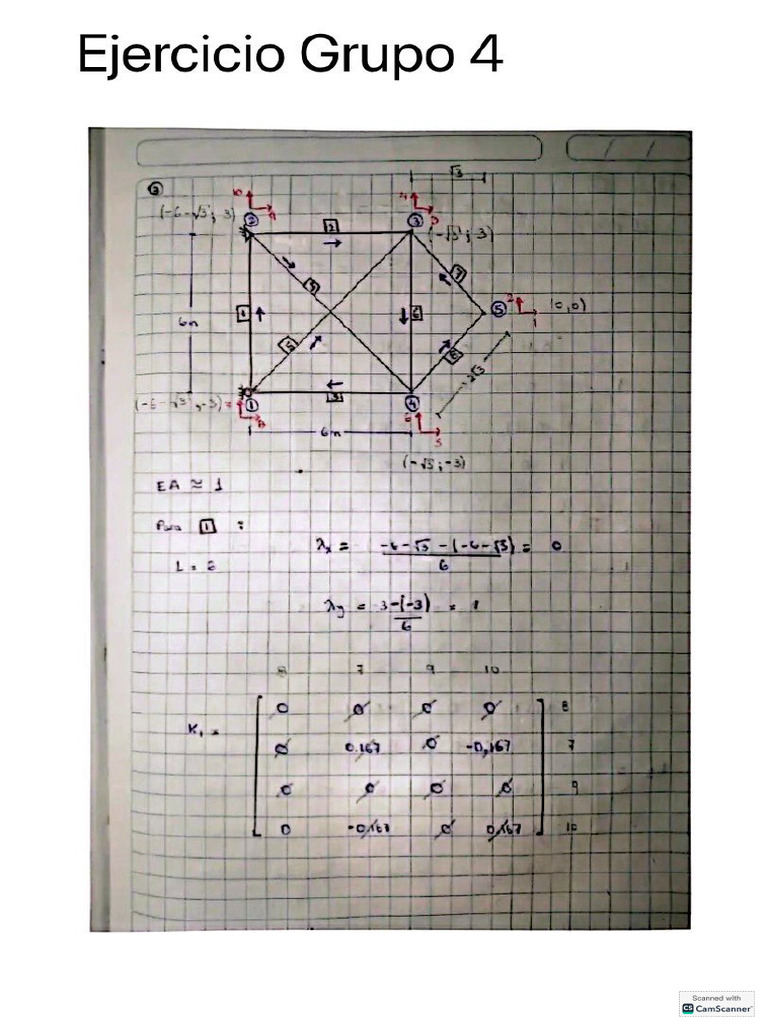 Ejercicio Grupo 4
③
√3
10
4
(-6-√3; 3)
②
9
2
③
3
(-√3; 3)
5
7
6m
1
6
⑤
2
(0,0)
1
5
8
2√3
(-6-√3; -3)
①
8
3
④
6
5
6m
(-√3; -3)
EA ≈ 1
Para 1 :
λx = -6-√3 -(-6-√3) = 0
6
L = 6
λy = 3-(-3) = 1
6
8 7 9 10
K1 =
0 0 0 0 8
0 0.167 0 -0,167 7
0 0 0 0 9
0 -0,167 0 0,167 10
Scanned with
CS CamScanner